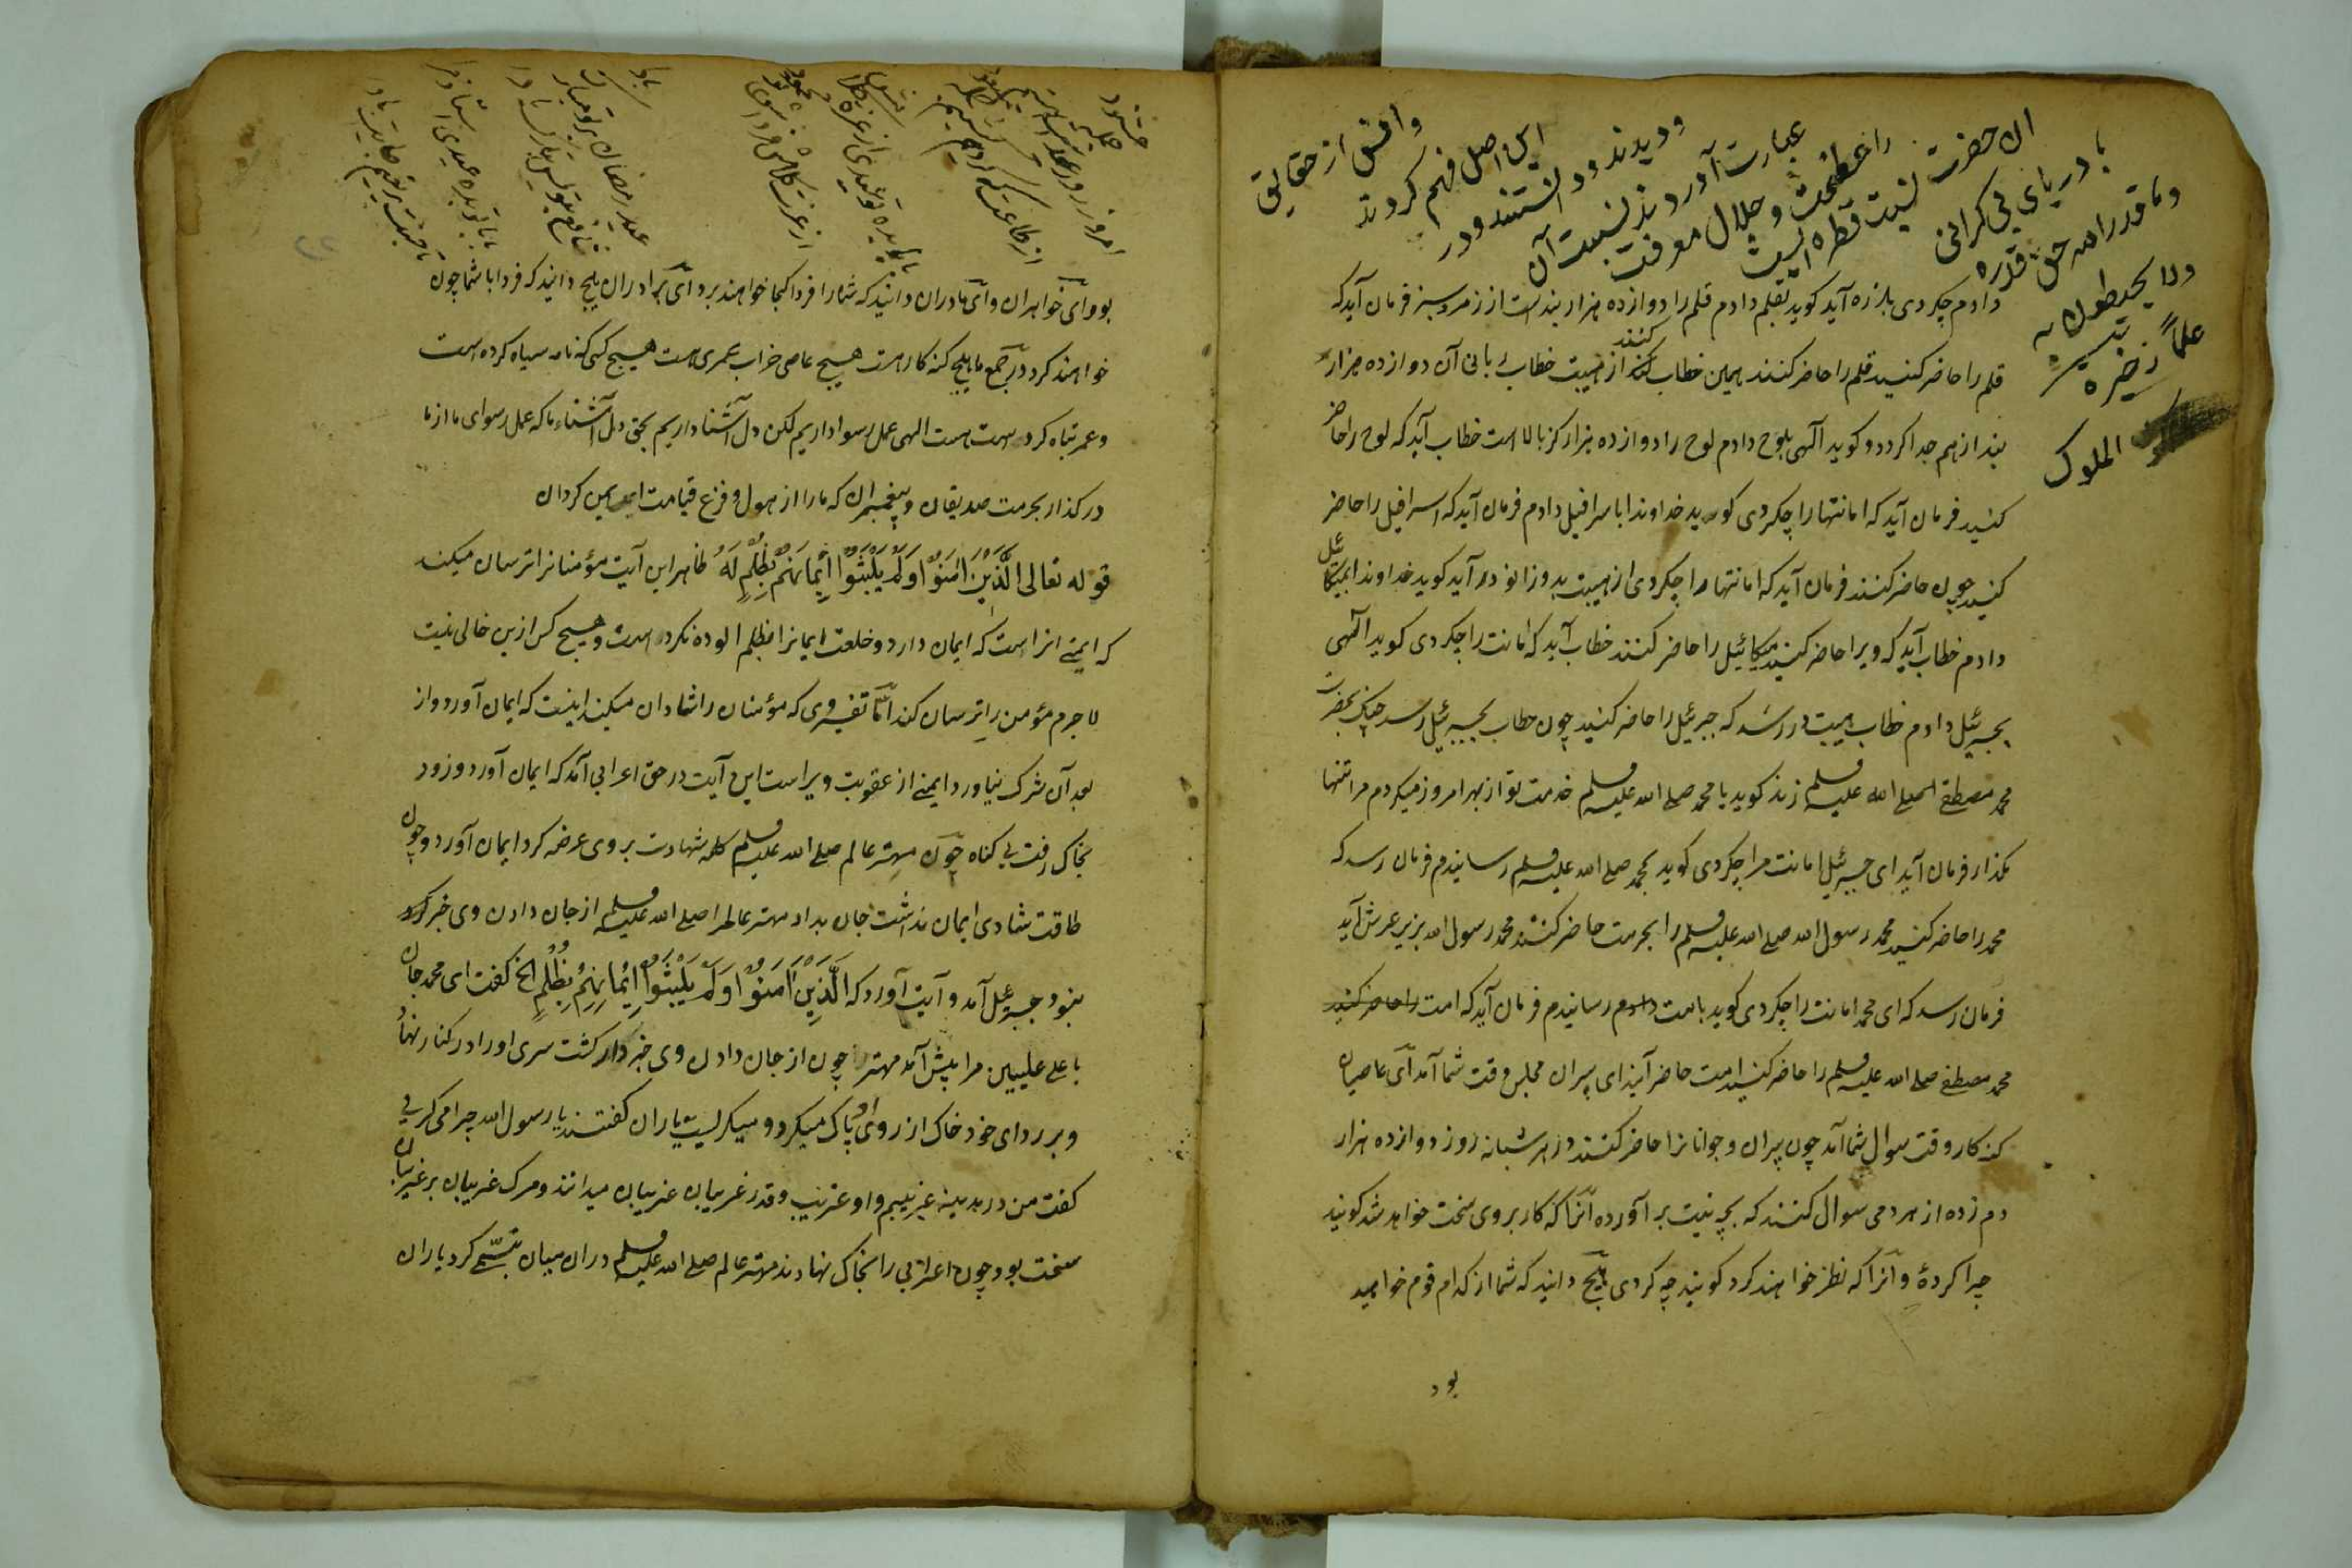 وافق از حقایق
این اصل فهم کردند
و دیدند و دانستند و در
عبارت آوردند نسبت آن
را عظمت و جلال معرفت
الا حضرت نسبت قطره ایست
با دریای بی کرانی
وما قدر الله حق قدره
ولا یحیطون به
علماً
ذخیره
الملوک
دادم چکردی بلرزه آید کوید بقلم دادم قلم را دوازده هزار بندست از زمرد سبز فرمان آید که
قلم را حاضر کنید قلم را حاضر کنند همین خطاب کنند از هیبت خطاب ربانی آن دوازده هزار
بند از هم جدا کردد و کوید الهی بلوح دادم لوح را دوازده هزار کز بالا است خطاب آید که لوح را حاضر
کنید فرمان آید که امانتها را چکردی کوید خداوندا باسرافیل دادم فرمان آید که اسرافیل را حاضر
کنید چون حاضر کنند فرمان آید که امانتها را چکردی از هیبت بدوزانو در آید کوید خداوندا بمیکائیل
دادم خطاب آید که ویرا حاضر کنید میکائیل را حاضر کنند خطاب آید که امانت را چکردی کوید الهی
بجبرئیل دادم خطاب هیبت در رسد که جبرئیل را حاضر کنید چون خطاب بجبرئیل رسد چنک بحضرت
محمد مصطفی صلی الله علیه وسلم زند کوید یا محمد صلی الله علیه وسلم خدمت تو از بهر امروز میکردم مرا تنها
مکذار فرمان آید ای جبرئیل امانت مرا چکردی کوید بمحمد صلی الله علیه وسلم رسانیدم فرمان رسد که
محمد را حاضر کنید محمد رسول الله صلی الله علیه وسلم را بحرمت حاضر کنند محمد رسول الله بزیر عرش آید
فرمان رسد که ای محمد امانت را چکردی کوید بامت دادم رسانیدم فرمان آید که امت را حاضر کنید
محمد مصطفی صلی الله علیه وسلم را حاضر کنید امت حاضر آیند ای پیران مجلس وقت شما آمد ای عاصیان
کنه کار وقت سوال شما آمد چون پیران و جوانانرا حاضر کنند در هر شبانه روز دوازده هزار
دم زده از هر دمی سوال کنند که بچه نیت بر آورده آنرا که کار بروی سخت خواهد شد کویند
چرا کردهٔ و آنرا که نظر خواهند کرد کویند چه کردی هیچ دانید که شما از کدام قوم خواهید
بود
خشنود
امروز روز
از طاعت که کردیم
از عزت کلاش فردا شوی
عید رمضان بر تو مبارک
بادا
بود و ای خواهران و ای مادران دانید که شما را فردا کجا خواهند برد و ای برادران هیچ دانید که فردا با شما چون
خواهند کرد در جمع ما هیچ کنه کار هست هیچ عاصی خراب عمری هست هیچ کسی که نامه سیاه کرده است
و عمر تباه کرده است هست الهی عمل رسوا داریم لکن دل آشنا داریم بحق دل آشناء ما که عمل رسوای ما از ما
در کذار بحرمت صدیقان و پیغمبران که ما را از هول و فزع قیامت ایمن کردان
قوله تعالی الَّذِیْنَ اٰمَنُوْا وَلَمْ یَلْبِثُوْا اِیْمَانَهُمْ بِظُلْمٍ لَهُ ظاهر این آیت مؤمنانرا ترسان میکند
که ایمنی انرا است که ایمان دارد و خلعت ایمانرا بظلم الوده نکرده است و هیچ کس ازین خالی نیست
لا جرم مؤمن را ترسان کند امّا تفسیر وی که مؤمنان را شادان میکند اینست که ایمان آورد و از
بعد آن شرک نیاورد ایمنی از عقوبت ویراست این آیت در حق اعرابی آمد که ایمان آورد و زود
بخاک رفت بی کناه چون مهتر عالم صلی الله علیه وسلم کلمه شهادت بر وی عرضه کرد ایمان آورد و چون
طاقت شادی ایمان نداشت جان بداد مهتر عالم را صلی الله علیه وسلم از جان دادن وی خبر
نبود جبرئیل آمد و آیت آورد که الَّذِیْنَ اٰمَنُوْا وَلَمْ یَلْبِثُوْا اِیْمَانَهُمْ بِظُلْمٍ الخ کفت ای محمد جان
با علی علیین مرا پیش آمد مهتر را چون از جان دادن وی خبر دار کشت سری او را در کنار نهاد
و بر ردای خود خاک از روی او پاک میکرد و میکریست یاران کفتند یا رسول الله چرا می کریی
کفت من در مدینه غریبم و او غریب و قدر غریبان غریبان میدانند و مرک غریبان بر غریبان
سخت بود چون اعرابی را بخاک نهادند مهتر عالم صلی الله علیه وسلم دران میان تبسّمی کرد یاران